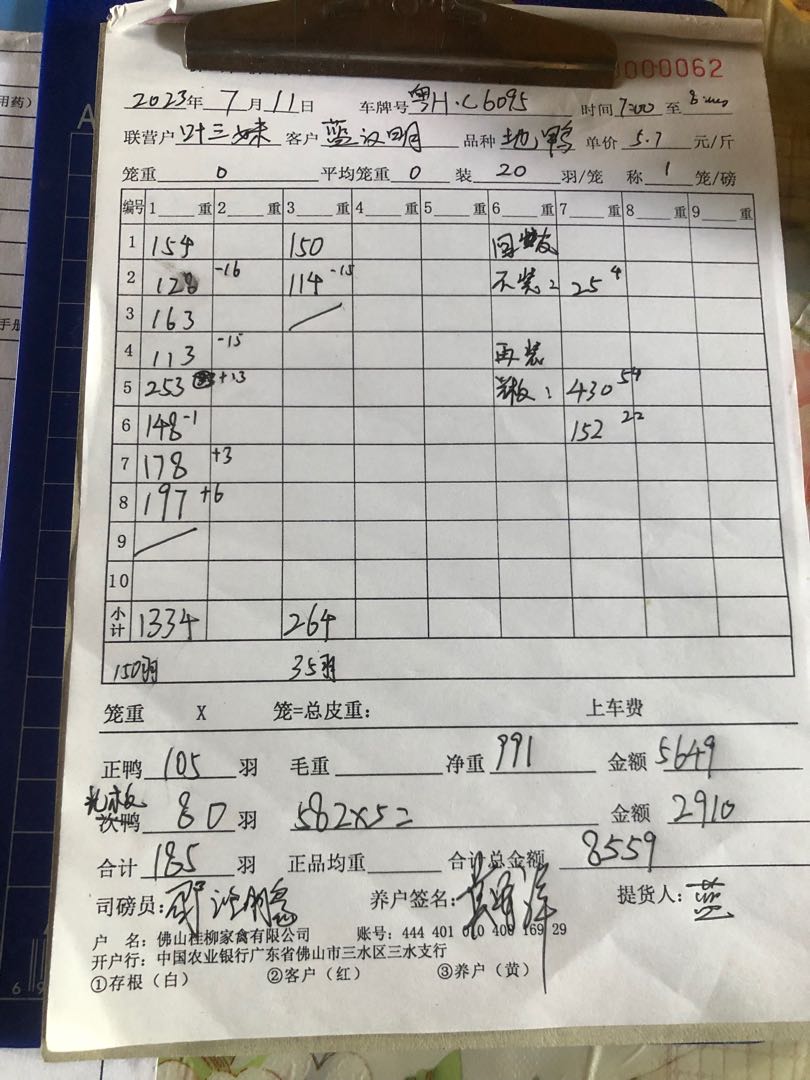 0000062
2023年 7月11日 车牌号 粤H·C6095 时间 7:00 至
联营户 叶三妹 客户 蓝汉明 品种 地鸭 单价 5.7 元/斤
笼重 0 平均笼重 0 装 20 羽/笼 称 1 笼/磅
编号 1 重 2 重 3 重 4 重 5 重 6 重 7 重 8 重 9 重
1 154 150
2 128 -16 114 -15 不装: 25 4
3 163
4 113 -15 再装
5 253 +13 光板: 430 54
6 148 -1 152 22
7 178 +3
8 197 +6
9
10
小计 1334 264
150羽 35羽
笼重 X 笼=总皮重: 上车费
正鸭 105 羽 毛重 净重 991 金额 5649
光板
次鸭 80 羽 582x5= 金额 2910
合计 185 羽 正品均重 合计总金额 8559
司磅员: 养户签名: 提货人: 蓝
户 名: 佛山桂柳家禽有限公司 账号: 444 401 010 400 169 29
开户行: 中国农业银行广东省佛山市三水区三水支行
①存根（白） ②客户（红） ③养户（黄）
用药）
手册
A